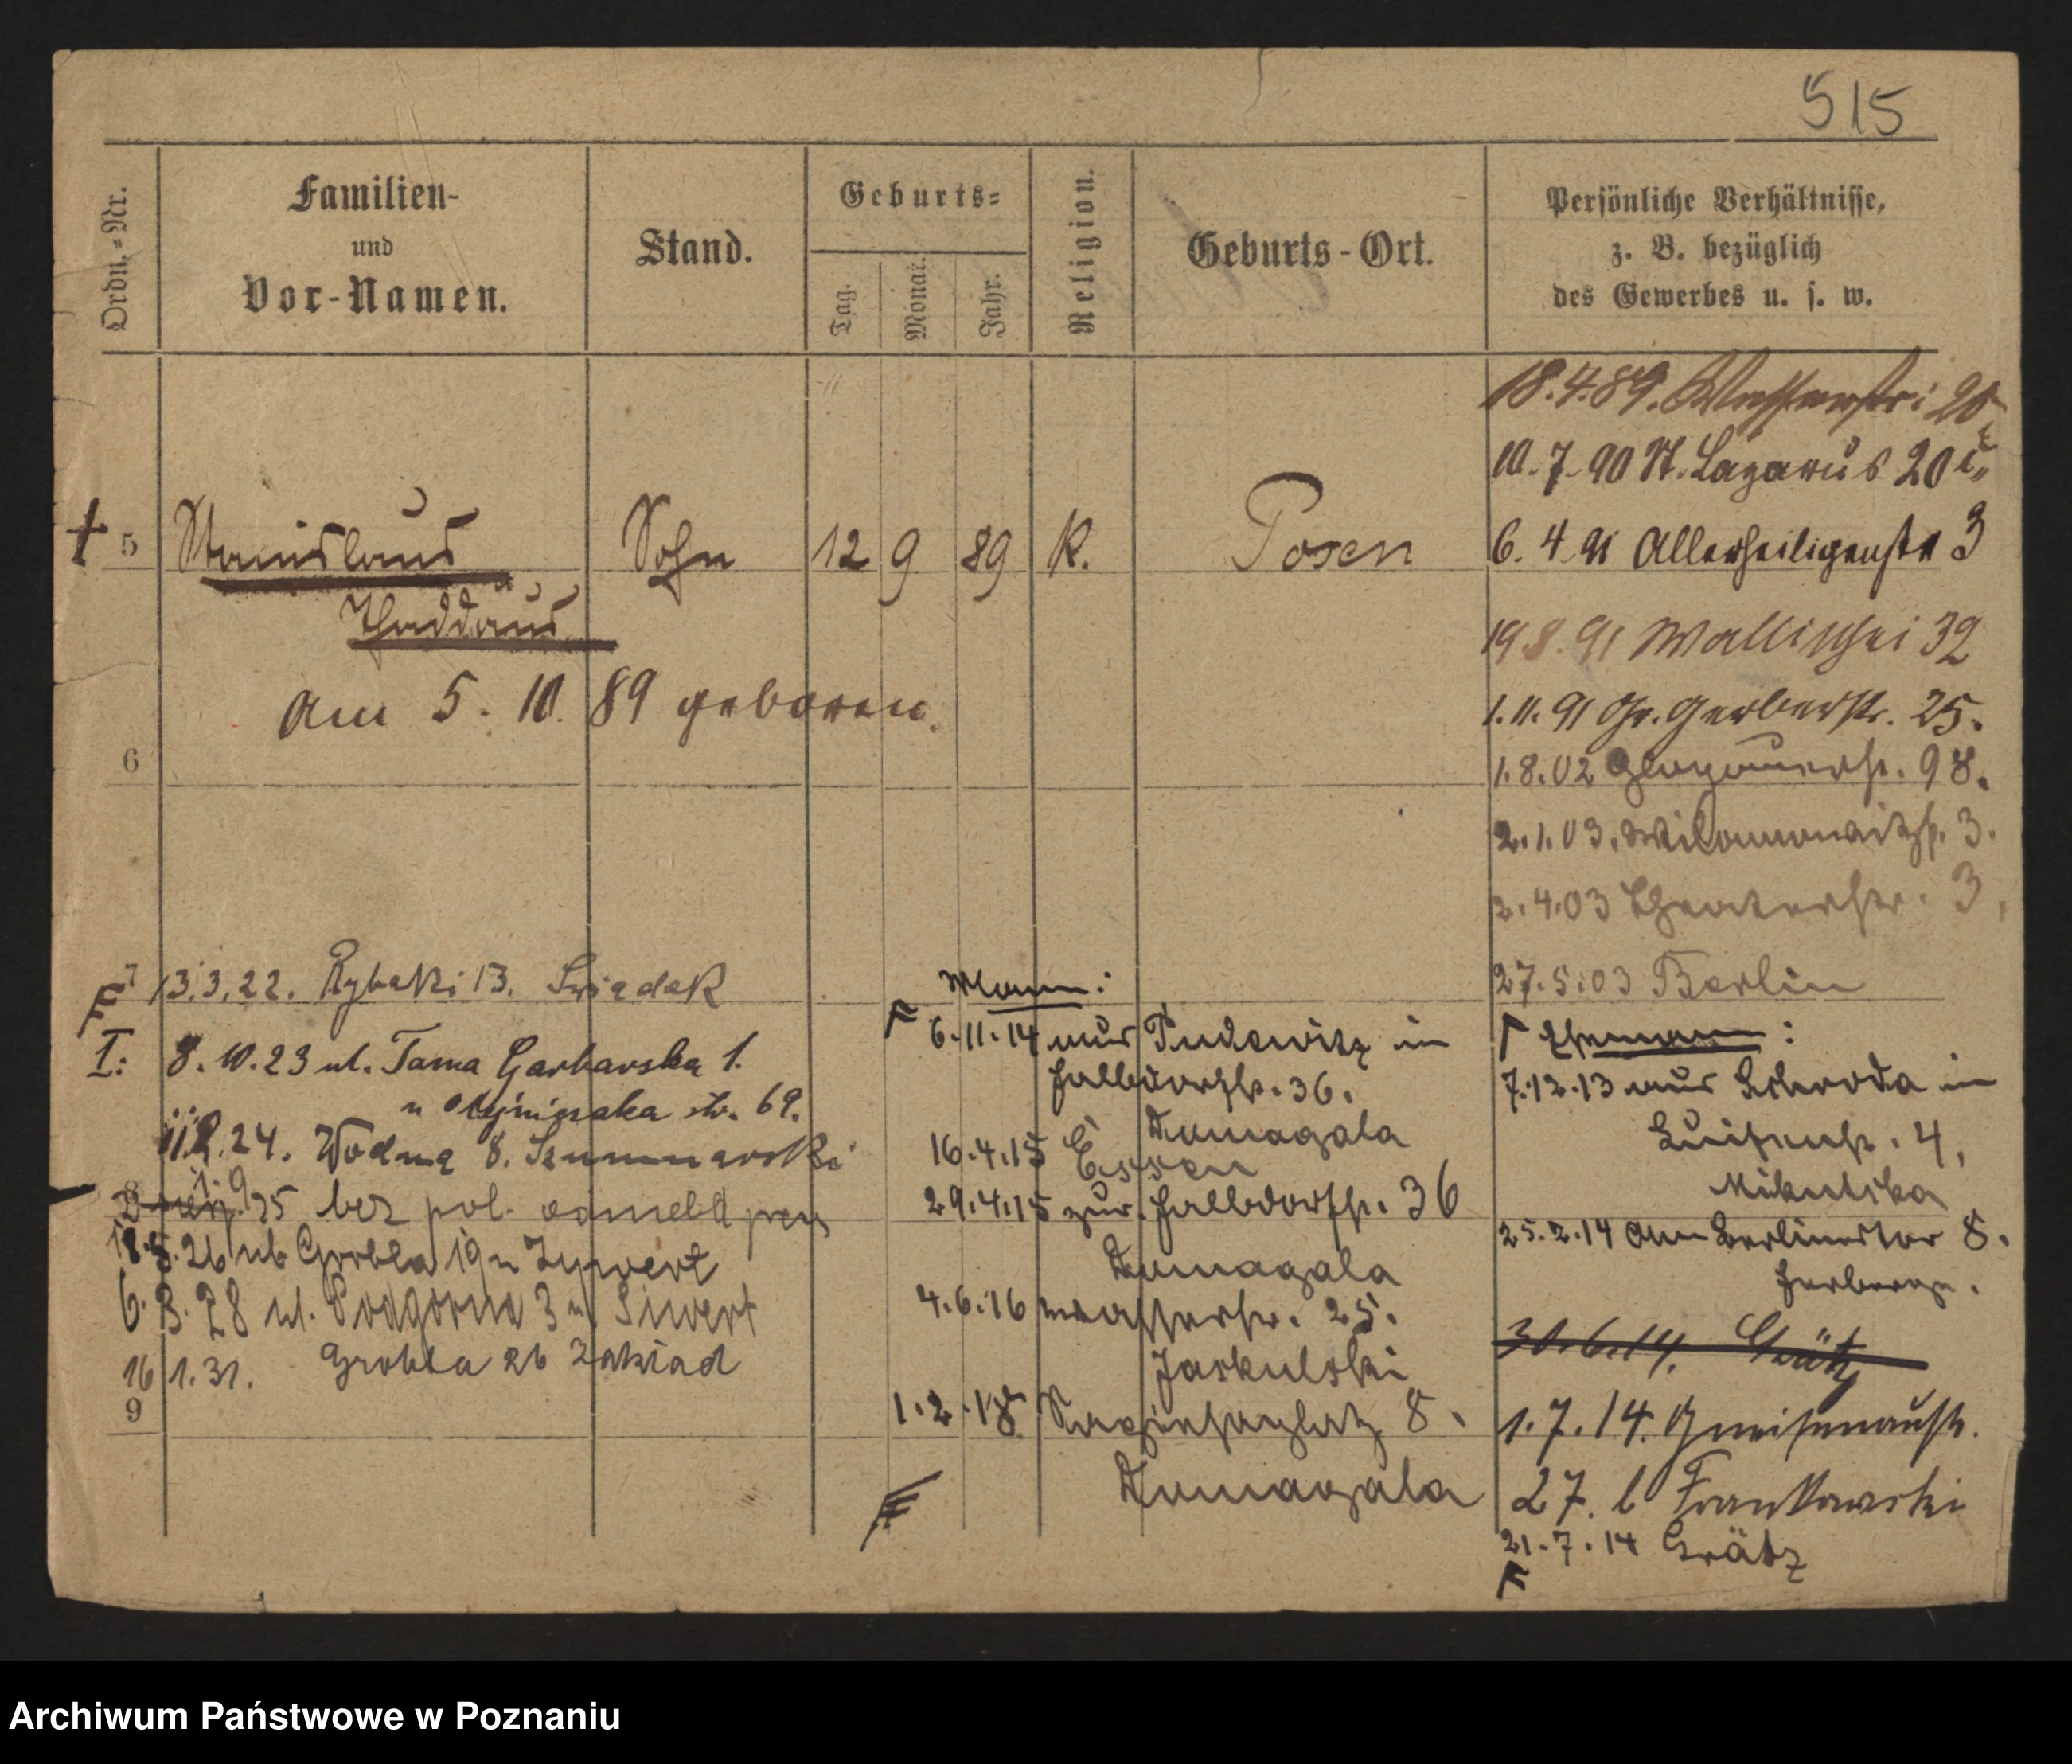 515
Ordn.-Nr.
Familien-
und
Vor-Namen.
Stand.
Geburts-
Tag.
Monat.
Jahr.
Religion.
Geburts-Ort.
Persönliche Verhältnisse,
z. B. bezüglich
des Gewerbes u. s. w.
18.7.89. Wasserstr. 20
10.7.90 St. Lazarus 20
5 Stanislaus Sohn 12 9 89 K. Posen
Thaddäus
am 5. 10. 89 geboren.
6. 4 91 Allerheiligenstr 3
19 8. 91 Wallischei 32
1.11.91 Gr. Gerberstr. 25.
6
1.8.02 Glogauerstr. 98.
2.1.03. 3.
2.4.03 Theaterstr. 3.
27.5.03 Berlin
7
13.3.22. Rybaki 13. Swiadek
I: 8.10.23 ul. Tama Garbarska 1.
69.
24. Wodna 8. Szummarski
25 bez pol.
18.5.26 ul Grobla 19
6.3.28 ul. Podgorna 3 Siwert
16 1.31. Grobla 26 Zaklad
9
Mann:
6.11.14 aus Pudewitz in
Halbdorfstr. 36.
Domagala
16.4.15 Essen
29.4.15 zur. Halbdorfstr. 36
Domagala
4.6.16 Wasserstr. 25.
Jaskulski
1.2.18 Sapiehaplatz 8.
Domagala
Ehemann:
7.12.13 aus Schroda in
Luisenstr. 4,
Mikulska
25.2.14 Am Berlinertor 8.
Herberge.
30.6.14. Grätz
1.7.14. Gneisenaustr.
27. b Frankowski
21.7.14 Grätz
Archiwum Państwowe w Poznaniu